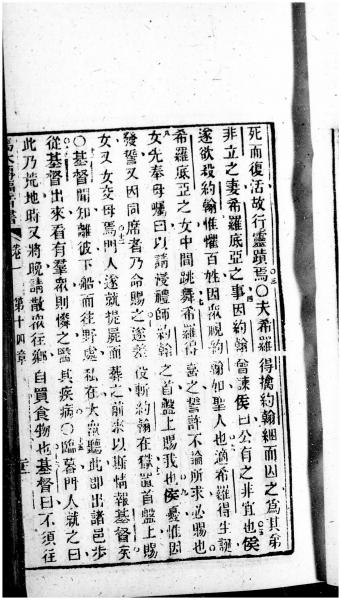 死而復活故行靈蹟焉〇夫希羅得擒約翰綑而囚之為其弟
非立之妻希羅底亞之事因約翰曾諫侯曰公有之非宜也侯
遂欲殺約翰惟懼百姓因眾視約翰如聖人也適希羅得生誕
希羅底亞之女中間跳舞希羅得喜之誓許不論所求必賜也
女先奉母囑曰以請慢禮師約翰之首盤上賜我也侯憂惟因
發誓又因同席者乃命賜之遂差伎斬約翰在獄置首盤上賜
女又女交母焉門人遂就提屍而葬之前來以斯情報基督矣
〇基督聞知離彼下船而往野處私在大眾聽此卽出諸邑步
從基督出來看有羣眾則憐之醫其疾病〇臨暮門人就之曰
此乃荒地時又將晚請散眾往鄉自買食物也基督曰不須往
卷一 第十四章